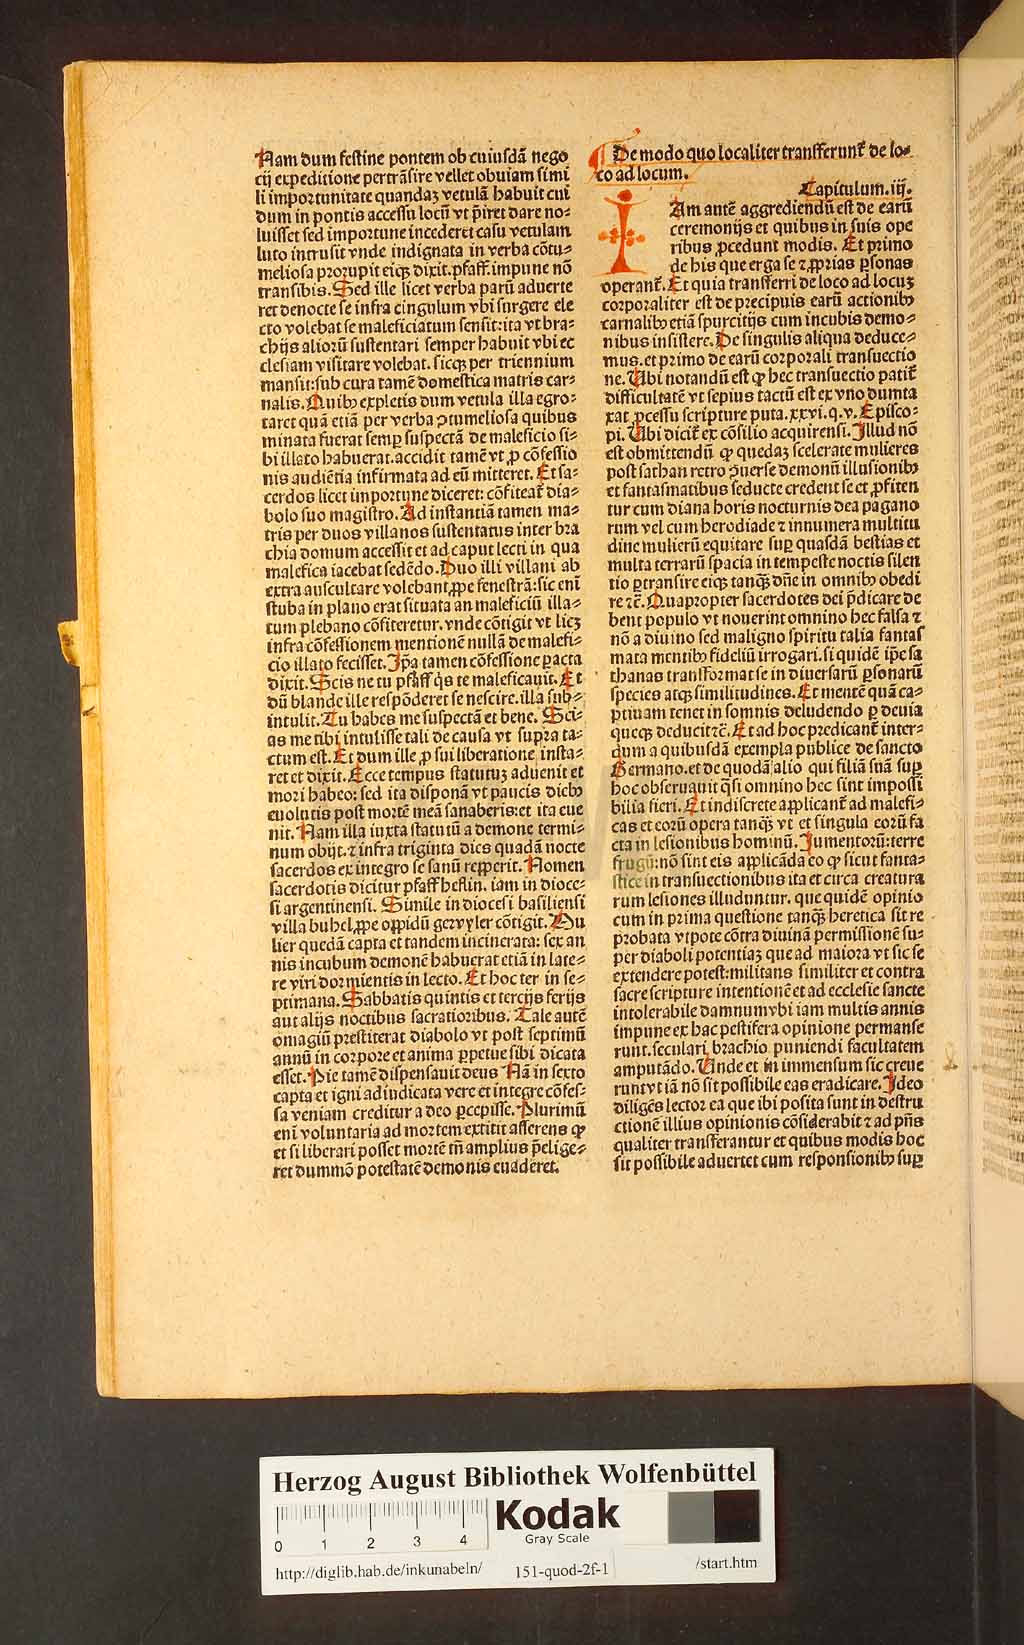 Nam dum festine pontem ob cuiusdā nego
cij expeditione pertrāsire vellet obuiam simi
li importunitate quandaꝫ vetulā habuit cui
dum in pontis accessu locū vt p̄iret dare no-
luisset sed importune incederet casu vetulam
luto intrusit vnde indignata in verba cōtu-
meliosa prorupit eiqꝫ dixit. pfaff. impune nō
transibis. Sed ille licet verba parū aduerte
ret de nocte se infra cingulum vbi surgere ele
cto volebat se maleficiatum sensit: ita vt bra-
chijs aliorū sustentari semper habuit vbi ec
clesiam visitare volebat. sicqꝫ per triennium
mansit: sub cura tamē domestica matris car-
nalis. Quibꝰ expletis dum vetula illa egro-
taret quā etiā per verba ꝯtumeliosa quibus
minata fuerat semꝑ suspectā de maleficio si-
bi illato habuerat. accidit tamē vt ꝓ cōfessio
nis audiētia infirmata ad eū mitteret. Et sa-
cerdos licet importune diceret: cōfiteat̄ dia-
bolo suo magistro. Ad instantiā tamen ma-
tris per duos villanos sustentatus inter bra
chia domum accessit et ad caput lecti in qua
malefica iacebat sedēdo. Duo illi villani ab
extra auscultare volebant ꝓpe fenestrā: sic enī
stuba in plano erat situata an maleficiū illa-
tum plebano cōfiteretur. vnde cōtigit vt licꝫ
infra cōfessionem mentionē nullā de malefi-
cio illato fecisset. Ip̄a tamen cōfessione ꝑacta
dixit. Scis ne tu pfaff q̇s te maleficauit. Et
dū blande ille respōderet se nescire. illa sub-
intulit. Tu habes me suspectā et bene. Sci-
as me tibi intulisse tali de causa vt supra ta-
ctum est. Et dum ille ꝓ sui liberatione insta-
ret et dixit. Ecce tempus statutuꝫ aduenit et
mori habeo: sed ita disponā vt paucis diebꝰ
euolutis post mortē meā sanaberis: et ita eue
nit. Nam illa iuxta statutū a demone termi-
num obijt. ⁊ infra triginta dies quadā nocte
sacerdos ex integro se sanū repperit. Nomen
sacerdotis dicitur pfaff heslin. iam in dioce-
si argentinensi. Simile in diocesi basiliensi
villa buhel, ꝓpe oppidū gervyler cōtigit. Mu
lier quedā capta et tandem incinerata: sex an
nis incubum demonē habuerat etiā in late-
re viri dormientis in lecto. Et hoc ter in se-
ptimana. Sabbatis quintis et tercijs ferijs
aut alijs noctibus sacratioribus. Tale autē
omagiū prestiterat diabolo vt post septimū
annū in corpore et anima ꝑpetue sibi dicata
esset. Pie tamē dispensauit deus Nā in sexto
capta et igni adiudicata vere et integre cōfes-
sa veniam creditur a deo ꝑcepisse. Plurimū
enī voluntaria ad mortem extitit asserens ꝙ
et si liberari posset mortē tn̄ amplius p̄elige-
ret dummō potestatē demonis euaderet.
De modo quo localiter transferunt̄ de lo-
co ad locum.
Capitulum. iij.
IAm autē aggrediendū est de earū
ceremonijs et quibus in suis ope
ribus ꝓcedunt modis. Et primo
de his que erga se ⁊ ꝓprias ꝑsonas
operant̄. Et quia transferri de loco ad locuꝫ
corporaliter est de precipuis earū actionibꝰ
carnalibꝰ etiā spurcitijs cum incubis demo-
nibus insistere. De singulis aliqua deduce-
mus. et primo de earū corporali transuectio
ne. Ubi notandū est ꝙ hec transuectio patit̄
difficultatē vt sepius tactū est ex vno dumta
xat ꝓcessu scripture puta. xxvi. q. v. Episco-
pi. Ubi dicit̄ ex cōsilio acquirensi. Illud nō
est obmittendū ꝙ quedaꝫ scelerate mulieres
post sathan retro ꝯuerse demonū illusionibꝰ
et fantasmatibus seducte credent se et ꝓfiten
tur cum diana horis nocturnis dea pagano
rum vel cum herodiade ⁊ innumera multitu
dine mulierū equitare suꝑ quasdā bestias et
multa terrarū spacia intempeste noctis silen
tio ꝑtransire eiqꝫ tanqꝫ dn̄e in omnibꝰ obedi
re ⁊c̄. Quapropter sacerdotes dei p̄dicare de
bent populo vt nouerint omnino hec falsa ⁊
nō a diuino sed maligno spiritu talia fantas
mata mentibꝰ fideliū irrogari. si quidē ip̄e sa
thanas transformat se in diuersarū ꝑsonarū
species atqꝫ similitudines. Et mentē quā ca-
ptiuam tenet in somnis deludendo ꝑ deuia
queqꝫ deducit ⁊c̄. Et ad hoc predicant̄ inter-
dum a quibusdā exempla publice de sancto
Germano. et de quodā alio qui filiā suā suꝑ
hoc obseruauit q̄si omnino hec sint impossi
bilia fieri. Et indiscrete applicant̄ ad malefi-
cas et eorū opera tanqꝫ vt et singula eorū fa
cta in lesionibus hominū. Jumentorū: terre
frugū: nō sint eis applicāda eo ꝙ sicut fanta-
stice in transuectionibus ita et circa creatura
rum lesiones illuduntur. que quidē opinio
cum in prima questione tanqꝫ heretica sit re
probata vtpote cōtra diuinā permissionē su-
per diaboli potentiaꝫ que ad maiora vt sic se
extendere potest: militans similiter et contra
sacre scripture intentionē et ad ecclesie sancte
intolerabile damnum vbi iam multis annis
impune ex hac pestifera opinione permanse
runt. seculari brachio puniendi facultatem
amputādo. Unde et in immensum sic creue
runt vt iā nō sit possibile eas eradicare. Ideo
diligēs lector ea que ibi posita sunt in destru
ctionē illius opinionis cōsiderabit ⁊ ad pn̄s
qualiter transferantur et quibus modis hoc
sit possibile aduertet cum responsionibꝰ suꝑ
Herzog August Bibliothek Wolfenbüttel
0 1 2 3 4
Kodak
Gray Scale
http://diglib.hab.de/inkunabeln/ 151-quod-2f-1 /start.htm